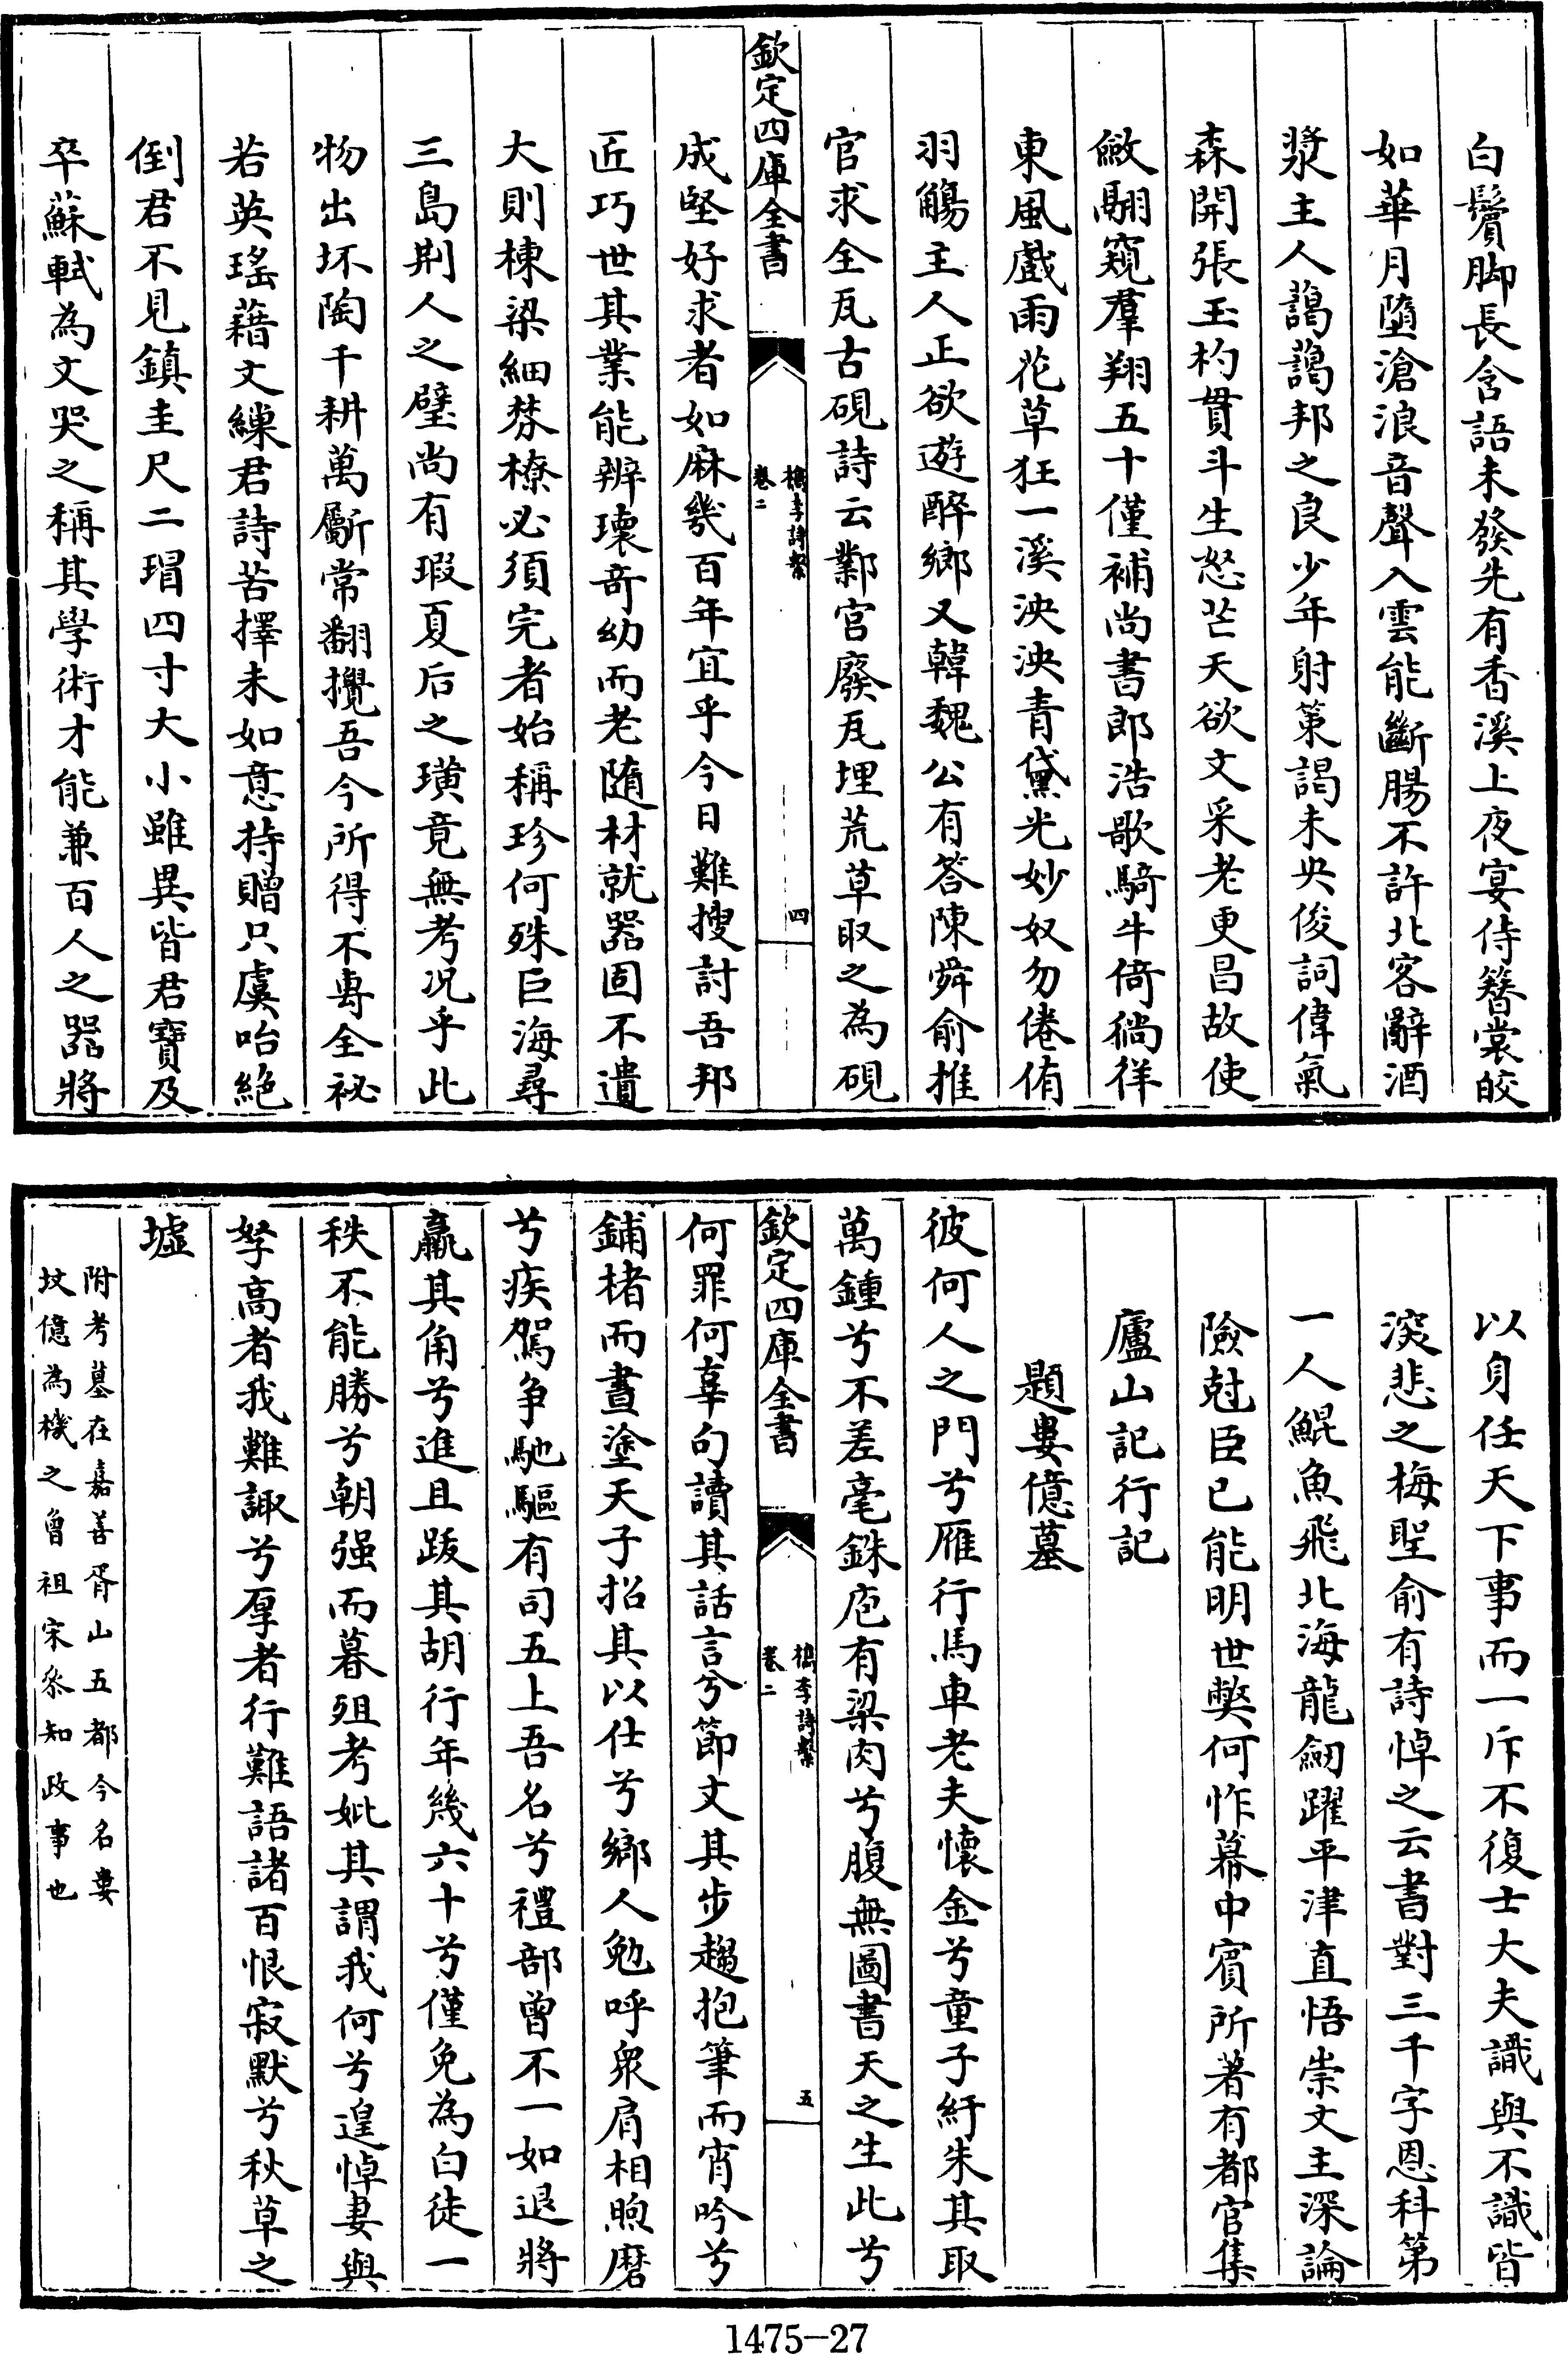 白鬢脚長含語未發先有香溪上夜宴侍簪裳皎
如華月墮滄浪音聲入雲能斷腸不許北客辭酒
漿主人藹藹邦之良少年射策謁未央俊詞偉氣
森開張玉杓貫斗生怒芒天欲文采老更昌故使
斂翮窺羣翔五十僅補尚書郎浩歌騎牛倚徜徉
東風戲雨花草狂一溪泱泱青黛光妙奴勿倦侑
羽觴主人正欲遊醉鄉又韓魏公有答陳舜俞推
官求全瓦古硯詩云鄴宮廢瓦埋荒草取之為硯
欽定四庫全書
檇李詩繫
卷二
四
成堅好求者如麻幾百年宜乎今日難搜討吾邦
匠巧世其業能辨瓌奇幼而老隨材就器固不遺
大則棟梁細棼橑必須完者始稱珍何殊巨海尋
三島荆人之璧尚有瑕夏后之璜竟無考况乎此
物出坏陶千耕萬斸常翻攪吾今所得不專全祕
若英瑤藉文練君詩苦擇未如意持贈只虞咍絕
倒君不見鎮圭尺二瑁四寸大小雖異皆君寶及
卒蘇軾為文哭之稱其學術才能兼百人之器將
以身任天下事而一斥不復士大夫識與不識皆
深悲之梅聖俞有詩悼之云書對三千字恩科第
一人鯤魚飛北海龍劒躍平津直悟崇文主深論
險尅臣已能明世獘何怍幕中賓所著有都官集
廬山記行記
題婁億墓
彼何人之門兮雁行馬車老夫懷金兮童子紆朱其取
萬鍾兮不差毫銖庖有梁肉兮腹無圖書天之生此兮
欽定四庫全書
檇李詩繫
卷二
五
何罪何辜句讀其話言兮節文其步趨抱筆而宵吟兮
鋪楮而晝塗天子招其以仕兮鄉人勉呼衆肩相煦磨
兮疾駕争馳驅有司五上吾名兮禮部曾不一如退將
羸其角兮進且跋其胡行年幾六十兮僅免為白徒一
秩不能勝兮朝强而暮殂考妣其謂我何兮遑悼妻與
孥高者我難諏兮厚者行難語諸百恨寂默兮秋草之
墟
附考墓在嘉善胥山五都今名婁
坟億為機之曾祖宋叅知政事也
1475-27